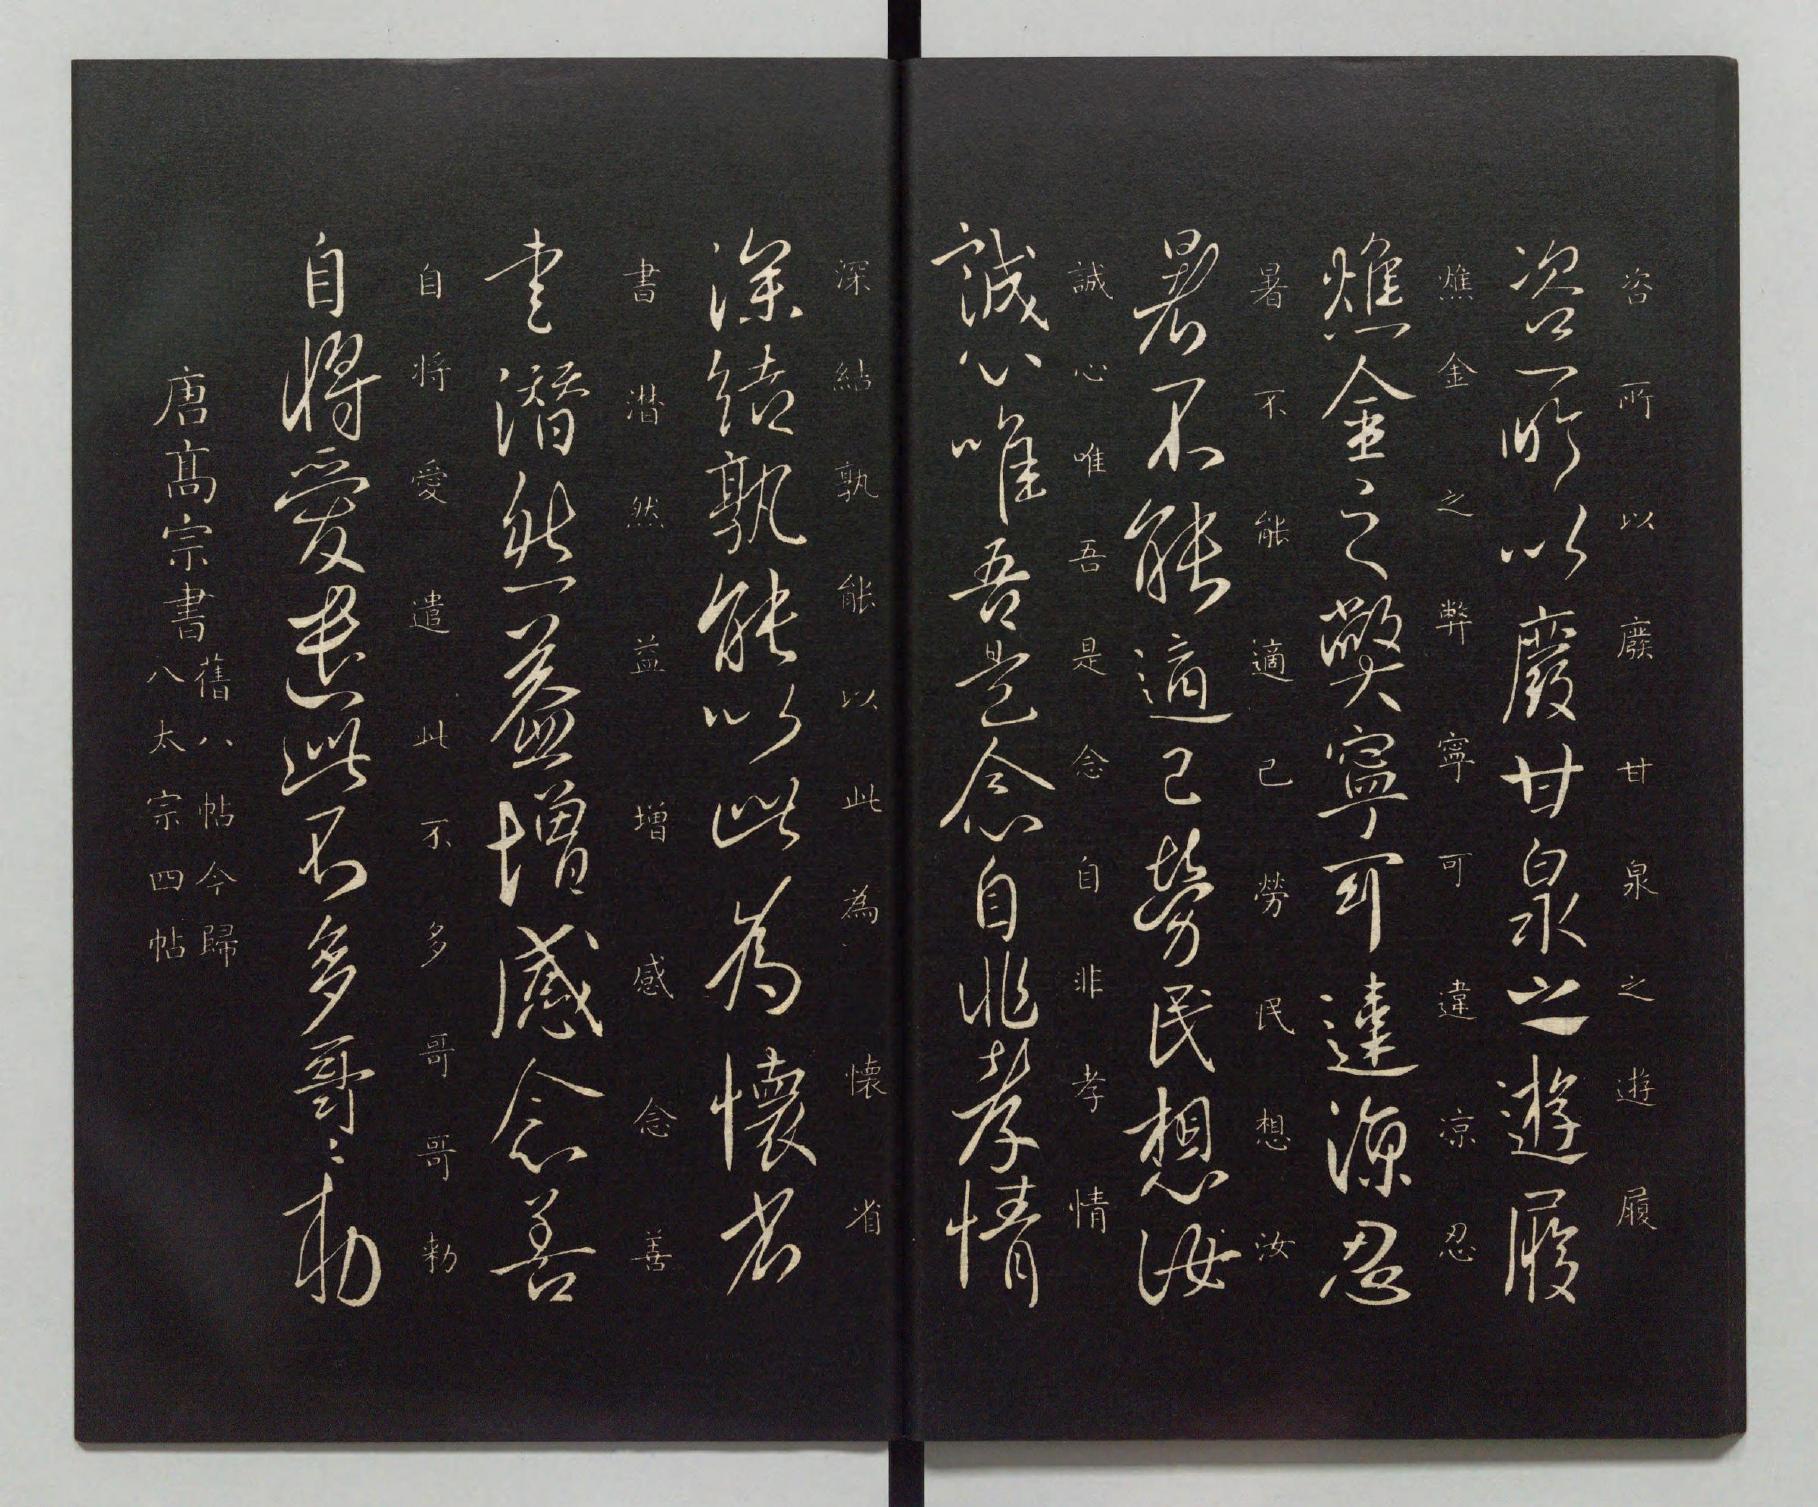 咨所以廢甘泉之遊履
咨所以廢甘泉之遊履
燋金之弊寧可違凉忍
燋金之弊寧可違涼忍
暑不能適己勞民想汝
暑不能適己勞民想汝
誠心唯吾是念自非孝情
誠心唯吾是念自非孝情
深結孰能以此為懷省
深結孰能以此為懷省
書潜然益增感念善
書潛然益增感念善
自将愛遣此不多哥哥勑
自將愛遣此不多哥〻勅
唐髙宗書
舊八帖今歸
八太宗四帖